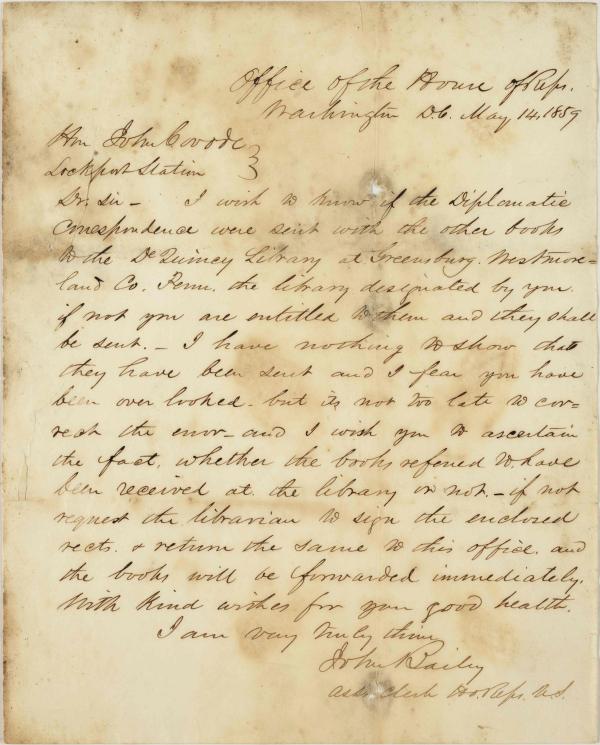 Office of the House of Reps.
Washington D.C. May 14, 1859
Hon John Covode }
Lockport Station
Dr. Sir - I wish to know if the Diplomatic
Correspondence were sent with the other books
to the De Quincy Library at Greensburg. Westmore=
land Co. Penn. the library designated by you.
if not you are entitled to them and they shall
be sent. - I have nothing to show that
they have been sent and I fear you have
been over looked - but its not too late to cor=
rect the error - and I wish you to ascertain
the fact, whether the books referred to have
been received at the library or not. - if not
request the librarian to sign the enclosed
rects. & return the same to this office. and
the books will be forwarded immediately.
With kind wishes for your good health.
I am very truly thine
John Bailey
asst. clerk Ho. Reps. U.S.